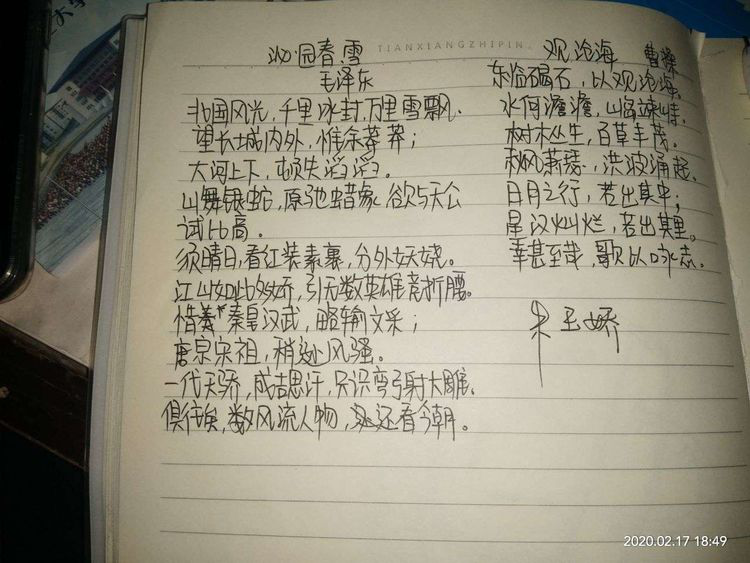 沁园春·雪
毛泽东
北国风光,千里冰封,万里雪飘.
望长城内外,惟余莽莽;
大河上下,顿失滔滔.
山舞银蛇,原驰蜡象,欲与天公
试比高.
须晴日,看红装素裹,分外妖娆.
江山如此多娇,引无数英雄竞折腰.
惜 秦皇汉武,略输文采;
唐宗宋祖,稍逊风骚.
一代天骄,成吉思汗,只识弯弓射大雕.
俱往矣,数风流人物,还看今朝.
TIANXIANGZHIPIN
观沧海 曹操
东临碣石,以观沧海.
水何澹澹,山岛竦峙.
树木丛生,百草丰茂.
秋风萧瑟,洪波涌起.
日月之行,若出其中;
星汉灿烂,若出其里.
幸甚至哉,歌以咏志.
玉娇
2020.02.17 18:49